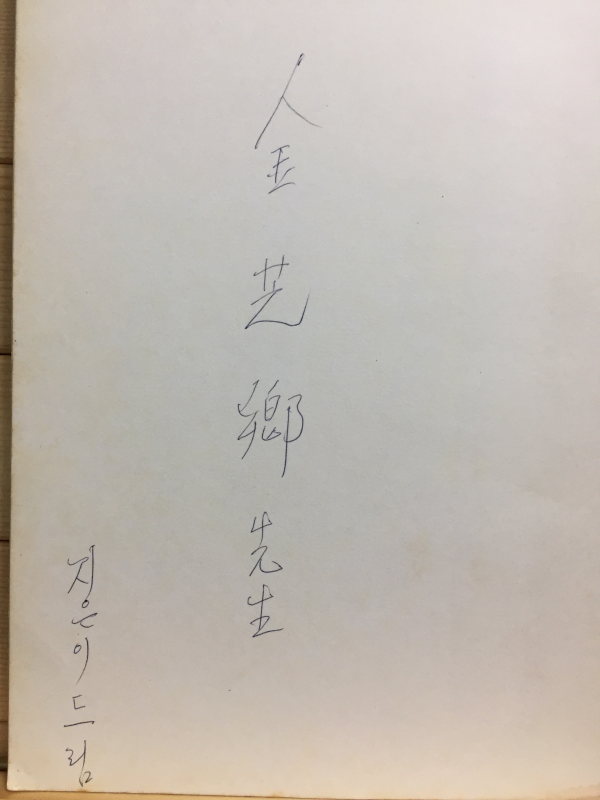 金芝鄕先生
지은이 드림